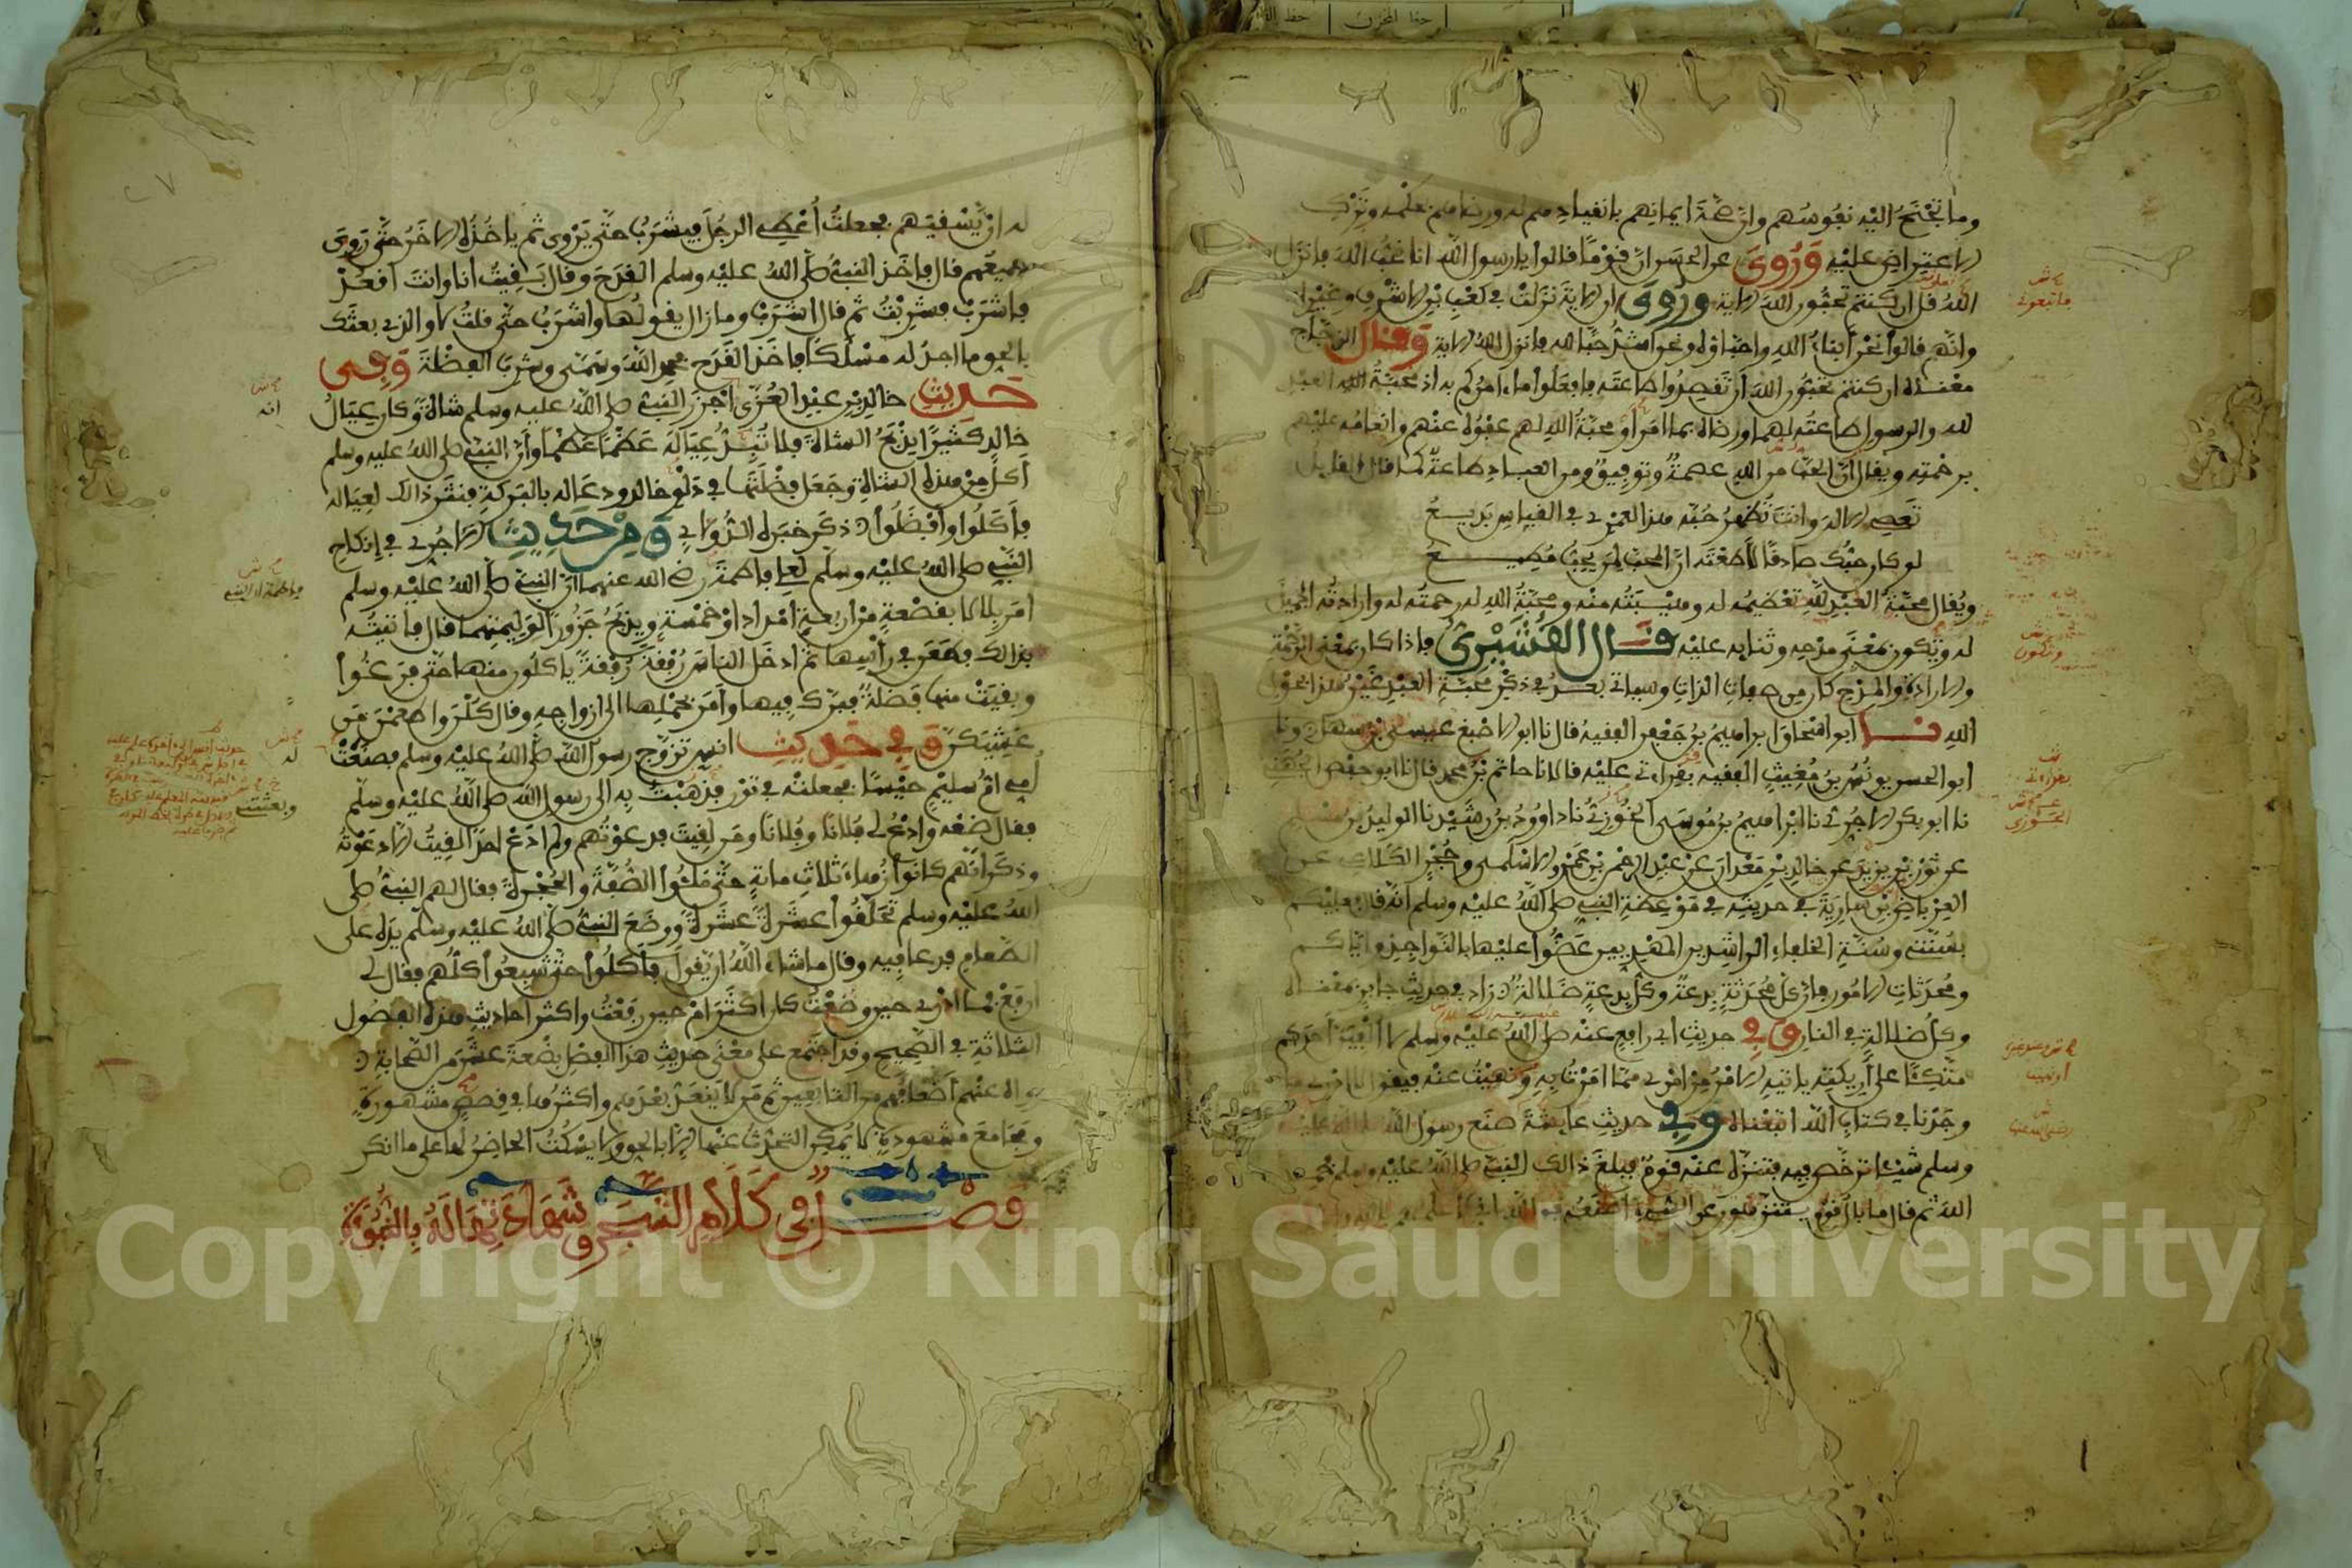 وما تجنح اليه نفوسهم وان صحة ايمانهم بانقيادهم له ورضاهم بحكمه وترك
الاعتراض عليه وروى عن الحسن ان قوما قالوا يا رسول الله انا نحب الله فانزل
الله قل ان كنتم تحبون الله الاية وروى ان الاية نزلت في كعب بن الاشرف وغيره
وانهم قالوا نحن ابناء الله واحباؤه ونحن اشد حبا لله فانزل الله الاية وقال الزجاج
معناه ان كنتم تحبون الله ان تقصدوا طاعته فافعلوا ما امركم به اذ محبة العبد
لله والرسول طاعته لهما ورضاه بما امرا ومحبة الله لهم عفوه عنهم وانعامه عليهم
برحمته ويقال ان الحب من الله عصمة وتوفيق ومن العباد طاعة كما قال القايل
تعصي الاله وانت تظهر حبه هذا لعمري في القياس بديع
لو كان حبك صادقا لاطعته ان المحب لمن يحب مطيع
ويقال محبة العبد لله تعظيمه له وهيبته منه ومحبة الله له رحمته له وارادته الجميل
له وتكون بمعنى مدحه وثنايه عليه قال القشيري فاذا كان بمعنى الرحمة
والارادة والمدح كان من صفات الذات وسياتي بعد في ذكر محبة العبد غير هذا بحول
الله نا ابو اسحاق ابراهيم بن جعفر الفقيه قال نا ابو الاصبغ عيسى بن سهل ونا
ابو الحسن يونس بن مغيث الفقيه بقراءتي عليه قالا نا حاتم بن محمد قال نا ابو حفص الجهني
نا ابو بكر الاجري نا ابراهيم بن موسى الجوزي نا داوود بن رشيد نا الوليد بن مسلم
عن ثور بن يزيد عن خالد بن معدان عن عبد الرحمن بن عمرو الاسلمي وحجر الكلاعي عن
العرباض بن سارية في حديثه في موعظة النبي صلى الله عليه وسلم انه قال فعليكم
بسنتي وسنة الخلفاء الراشدين المهديين عضوا عليها بالنواجذ واياكم
ومحدثات الامور فان كل محدثة بدعة وكل بدعة ضلالة زاد في حديث جابر بمعناه
وكل ضلالة في النار وفي حديث ابي رافع عنه صلى الله عليه وسلم لا الفين احدكم
متكئا على اريكته ياتيه الامر من امري مما امرت به ونهيت عنه فيقول لا ادري ما
وجدنا في كتاب الله اتبعناه وفي حديث عايشة صنع رسول الله صلى الله عليه
وسلم شيئا ترخص فيه فتنزه عنه قوم فبلغ ذالك النبي صلى الله عليه وسلم فحمد
الله ثم قال ما بال قوم يتنزهون عن الشيء اصنعه فوالله اني لاعلمهم بالله
فاتبعوني
وتكون
بقراءتي
الجوزي
اونهيت
له ان يسقيهم فجعلت اعطي الرجل فيشرب حتى يروى ثم ياخذه الاخر حتى روى
جميعهم قال فاخذ النبي صلى الله عليه وسلم القدح وقال بقيت انا وانت اقعد
فاشرب فشربت ثم قال اشرب وما زال يقولها واشرب حتى قلت لا والذي بعثك
بالحق ما اجد له مسلكا فاخذ القدح فحمد الله وسمى وشرب الفضلة وفي
حديث خالد بن عبد العزى اجزر النبي صلى الله عليه وسلم شاة وكان عيال
خالد كثيرا يذبح الشاة فلا تبد عياله عظما عظما وان النبي صلى الله عليه وسلم
اكل من هذه الشاة وجعل فضلتها في دلو خالد ودعا له بالبركة فنثر ذالك لعياله
فاكلوا وافضلوا ذكر خبره الدولابي ومن حديث الاجري في انكاح
النبي صلى الله عليه وسلم لعلي فاطمة رضي الله عنهما ان النبي صلى الله عليه وسلم
امر بلالا بقصعة من اربعة امداد او خمسة ويذبح جزورا لوليمتهما قال فاتيته
بذالك فطعن في راسها ثم ادخل الناس رفقة رفقة ياكلون منها حتى فرغوا
وبقيت منها فضلة فبرك فيها وامر بحملها الى ازواجه وقال كلن واطعمن من
غشيكن وفي حديث انس تزوج رسول الله صلى الله عليه وسلم فصنعت
امي ام سليم حيسا فجعلته في تور فذهبت به الى رسول الله صلى الله عليه وسلم
فقال ضعه وادع لي فلانا وفلانا ومن لقيت فدعوتهم ولم ادع احدا لقيت الا دعوته
وذكر انهم كانوا زهاء ثلاث ماية حتى ملئوا الصفة والحجرة فقال لهم النبي صلى
الله عليه وسلم تحلقوا عشرة عشرة ووضع النبي صلى الله عليه وسلم يده على
الطعام فدعا فيه وقال ما شاء الله ان يقول فاكلوا حتى شبعوا كلهم فقال لي
ارفع فما ادري حين وضعت كان اكثر ام حين رفعت واكثر احاديث هذه الفصول
الثلاثة في الصحيح وقد اجتمع على معنى حديث هذا الفصل بضعة عشر من الصحابة
رواه عنهم اضعافهم من التابعين ثم من لا ينعد بعدهم واكثرها في قصص مشهورة
ومجامع مشهودة لا يمكن التحدث عنها الا بالحق ولا يسكت الحاضر لها على ما انكر
فصل في كلام الشجر وشهادتها له بالنبوة
انه
له
وبعثت
Copyright © King Saud University